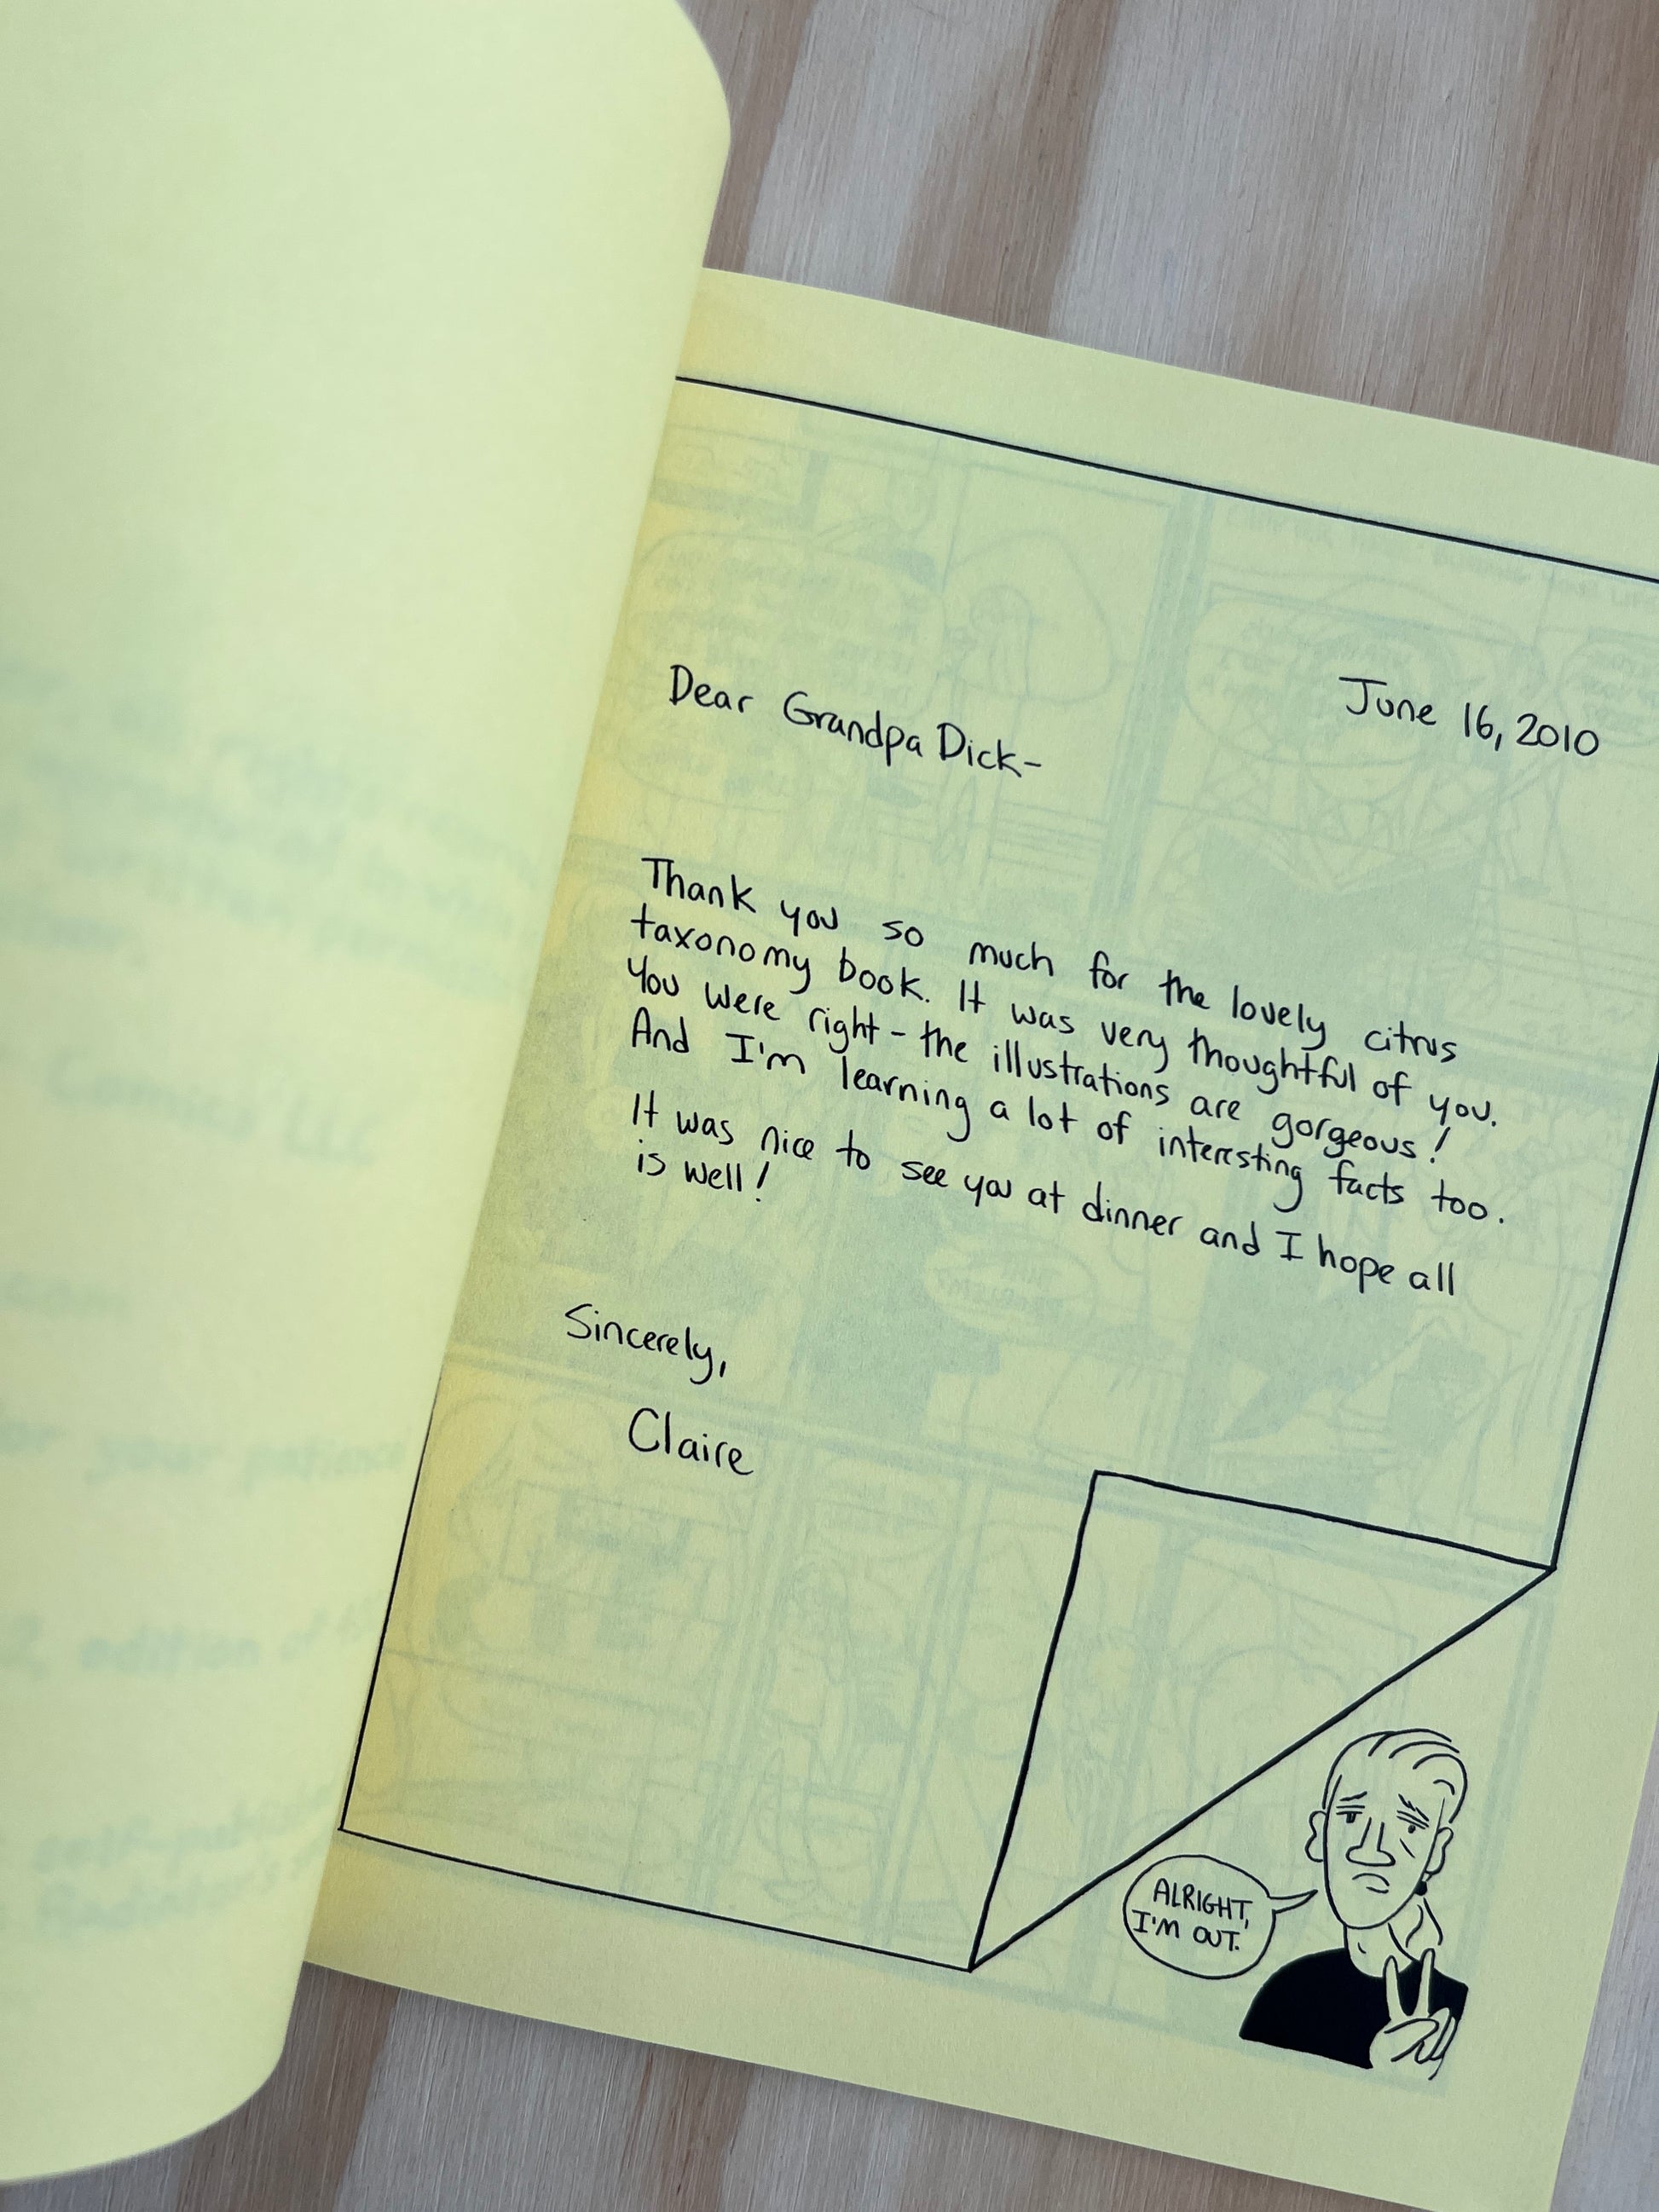 June 16, 2010
Dear Grandpa Dick-
Thank you so much for the lovely citrus
taxonomy book. It was very thoughtful of you.
You were right - the illustrations are gorgeous!
And I'm learning a lot of interesting facts too.
It was nice to see you at dinner and I hope all
is well!
Sincerely,
Claire
ALRIGHT,
I'M OUT.
or your patience
edition of